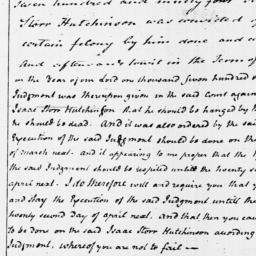 Seven hundred and ninety four
Storr Hutchinson was convicted of
certain felony by him done and
And afterwards towit in the Term of
in the Year of our Lord on thousand, Seven hundred
Judgment was thereupon given in the said Court against
Isaac Storr Hutchinson that he should be hanged by
he should be dead. And it was also ordered by the said
Execution of the said Judgment should be done on the
of march next. and it appearing to me proper that the
the said Judgment should be respited untill the twenty
april next. I do therefore will and require you that
and Stay the Execution of the said Judgment untill the
twenty second day of april next. and that then you cause
to be done on the said Isaac Storr Hutchinson according
Judgment, whereof you are not to fail —